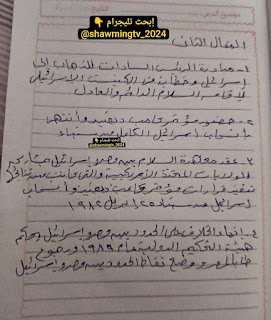 إبحث تليجرام
@shawmingtv_2024
المقال الثانى
١- مبادرة الرئيس السادات للذهاب إلى
إسرائيل وخطابه فى الكنيست الإسرائيلى
لإقامة السلام الدائم والعادل
٢- حضور مؤتمر كامب ديفيد وانتهى
بانسحاب اسرائيل الكامل من سيناء
٣- عقد معاهدة السلام بين مصر واسرائيل بمشاركة
الولايات المتحدة الأمريكية والتى
تنفيذ قرارات مؤتمر كامب ديفيد وانسحاب
اسرائيل من سيناء ٢٥ ابريل ١٩٨٢
٤- إنهاء الخلاف على الحدود بين مصر واسرائيل بحكم
هيئة التحكيم الدولية عام ١٩٨٩ ورجوع
طابا لمصر ووضع نقاط الحدود بين مصر واسرائيل